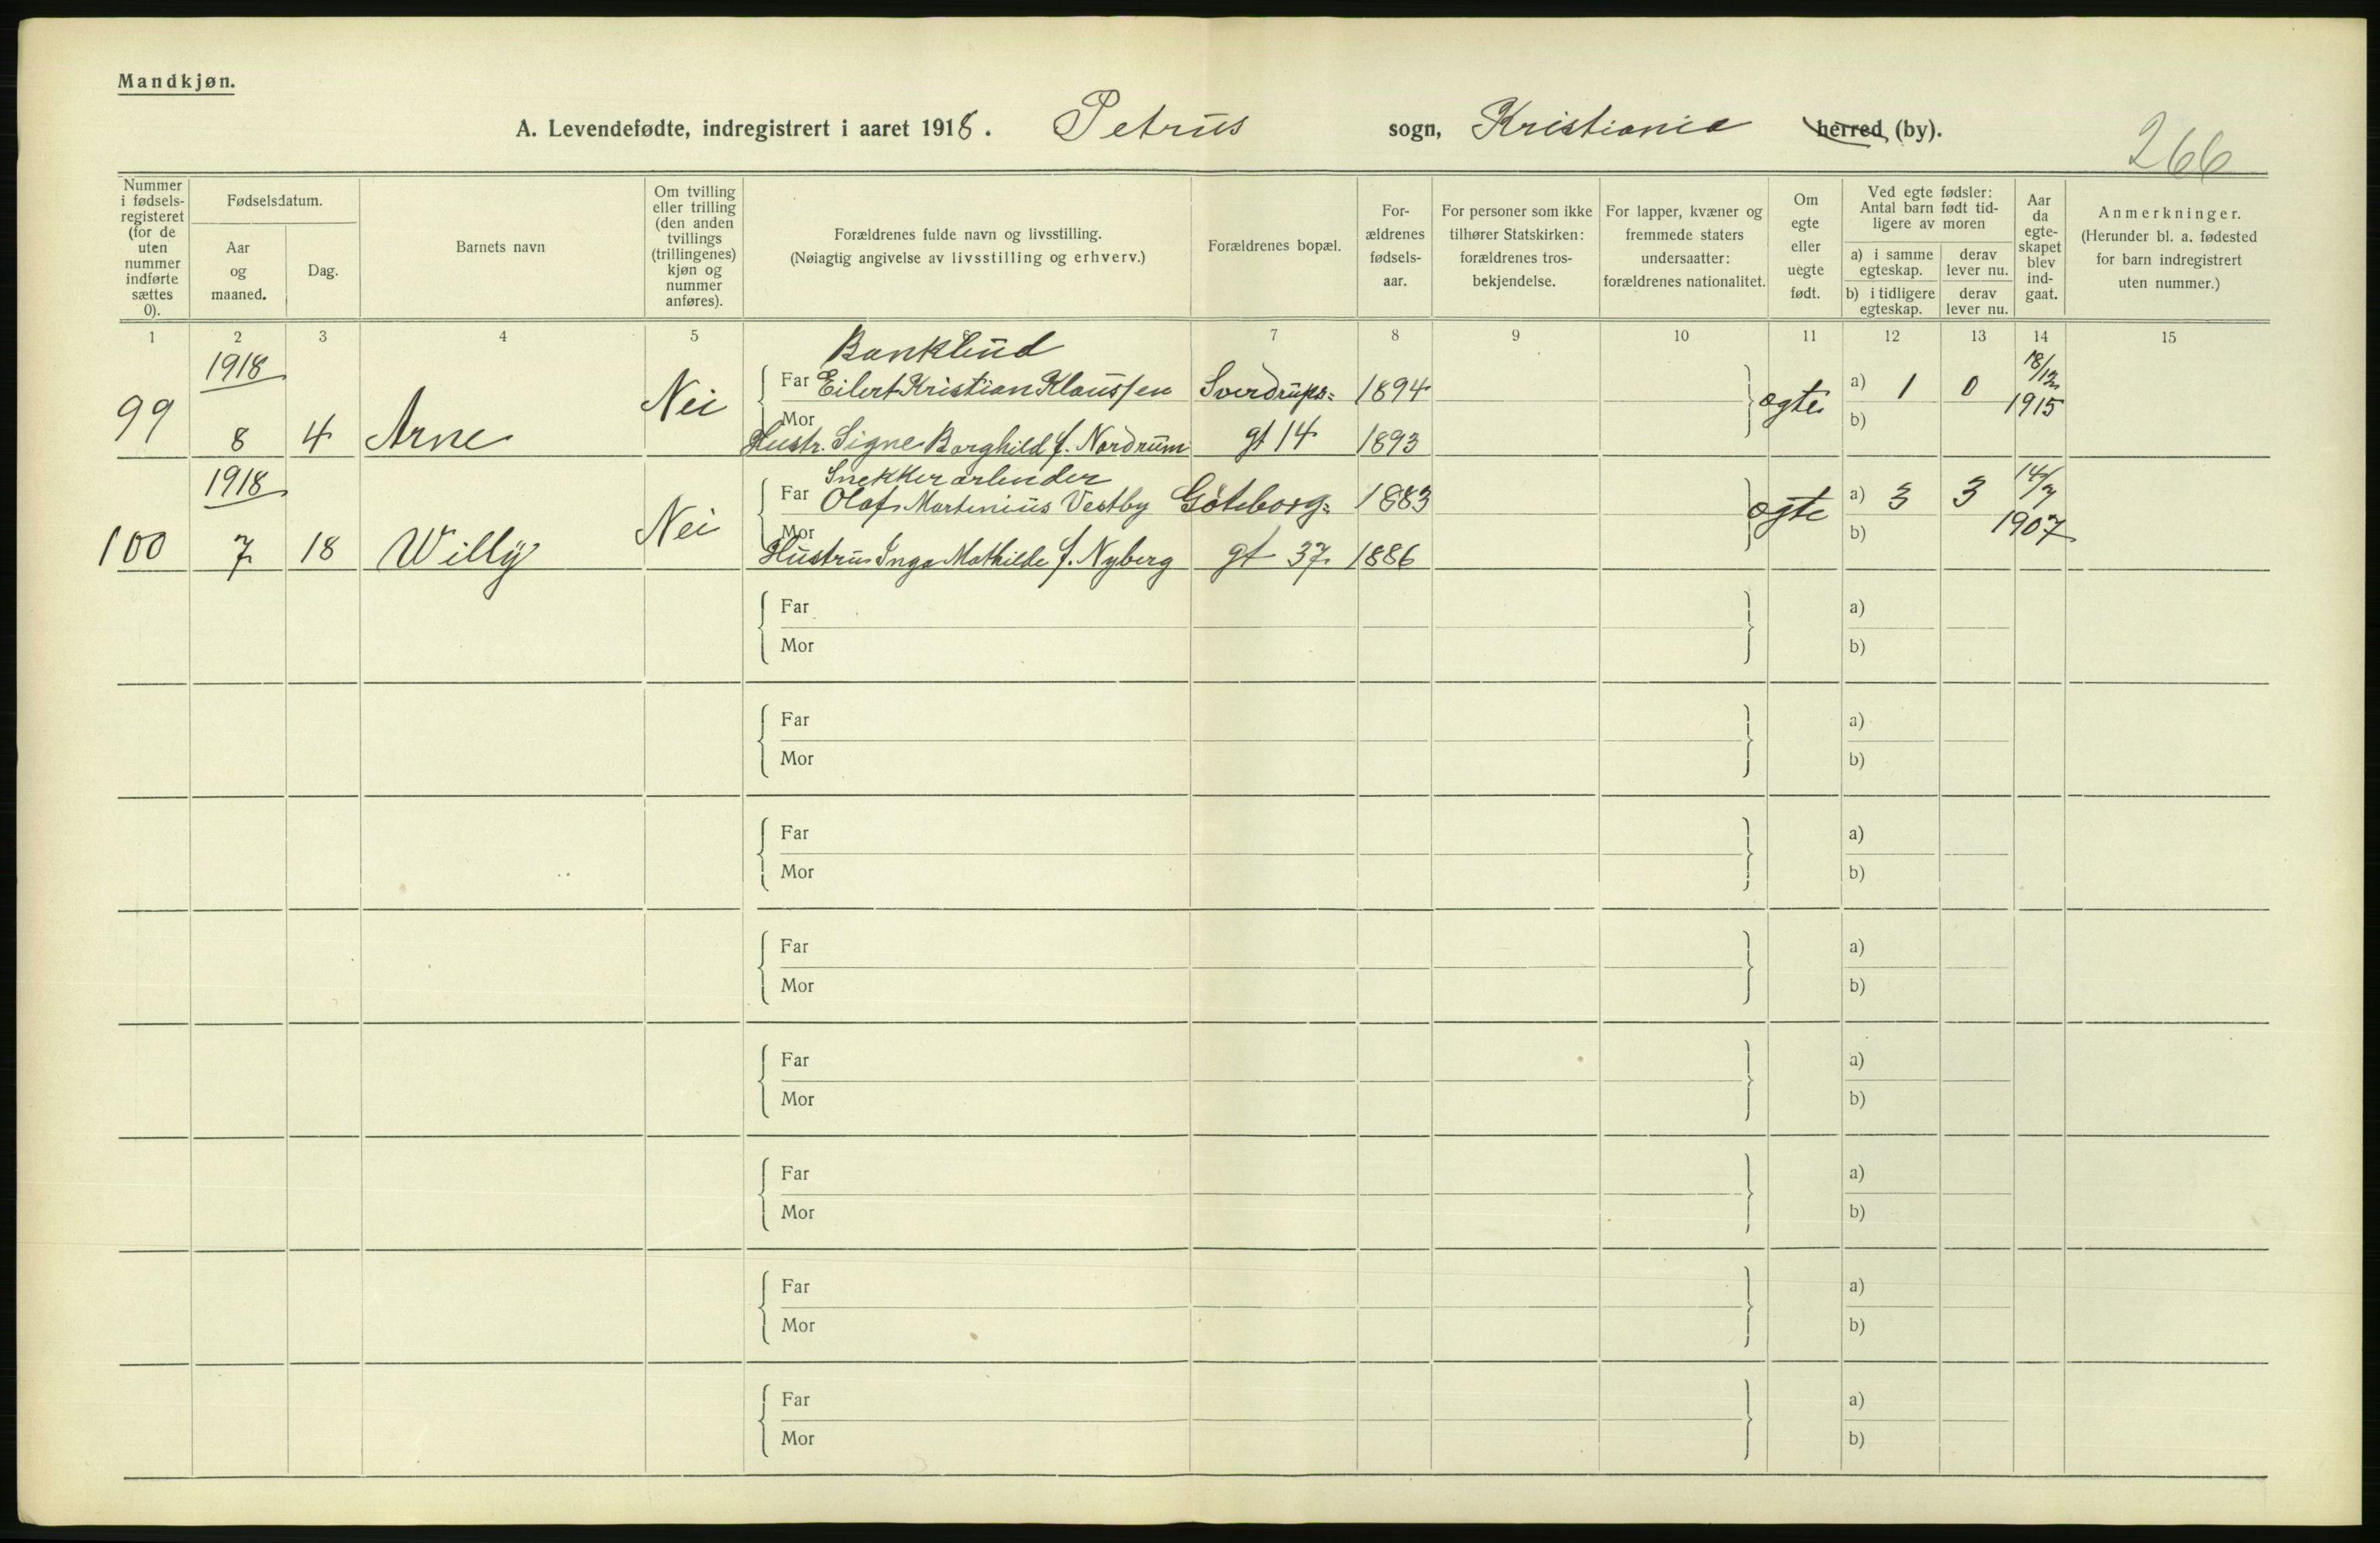 Mandkjøn.
A. Levendefødte, indregistrert i aaret 1918. Petrus sogn, Kristiania herred (by).
266
Nummer i fødsels-registeret (for de uten nummer indførte sættes 0).
Fødselsdatum.
Aar og maaned.
Dag.
Barnets navn
Om tvilling eller trilling (den anden tvillings (trillingenes) kjøn og nummer anføres).
Forældrenes fulde navn og livsstilling.
(Nøiagtig angivelse av livsstilling og erhverv.)
Forældrenes bopæl.
For-ældrenes fødsels-aar.
For personer som ikke tilhører Statskirken: forældrenes tros-bekjendelse.
For lapper, kvæner og fremmede staters undersaatter: forældrenes nationalitet.
Om egte eller uegte født.
Ved egte fødsler: Antal barn født tid-ligere av moren
a) i samme egteskap.
derav lever nu.
b) i tidligere egteskap.
derav lever nu.
Aar da egte-skapet blev ind-gaat.
Anmerkninger.
(Herunder bl. a. fødested for barn indregistrert uten nummer.)
1 2 3 4 5 6 7 8 9 10 11 12 13 14 15
1918 Bankbud 18/12
99 Nei Far Eilert Kristian Klaussen Sverdrups= 1894 egte a) 1 0 1915
8 4 Arne Mor Hustr. Signe Borghild f. Nordrum gt 14 1893 b)
1918 Snekkerarbeider 14/7
Nei Far Olaf Martinius Vestby Göteborg= 1883 egte a) 3 3 1907
100 7 18 Willy Mor Hustru Inga Mathilde f. Nyberg gt 37 1886 b)
Far a)
Mor b)
Far a)
Mor b)
Far a)
Mor b)
Far a)
Mor b)
Far a)
Mor b)
Far a)
Mor b)
Far a)
Mor b)
Far a)
Mor b)